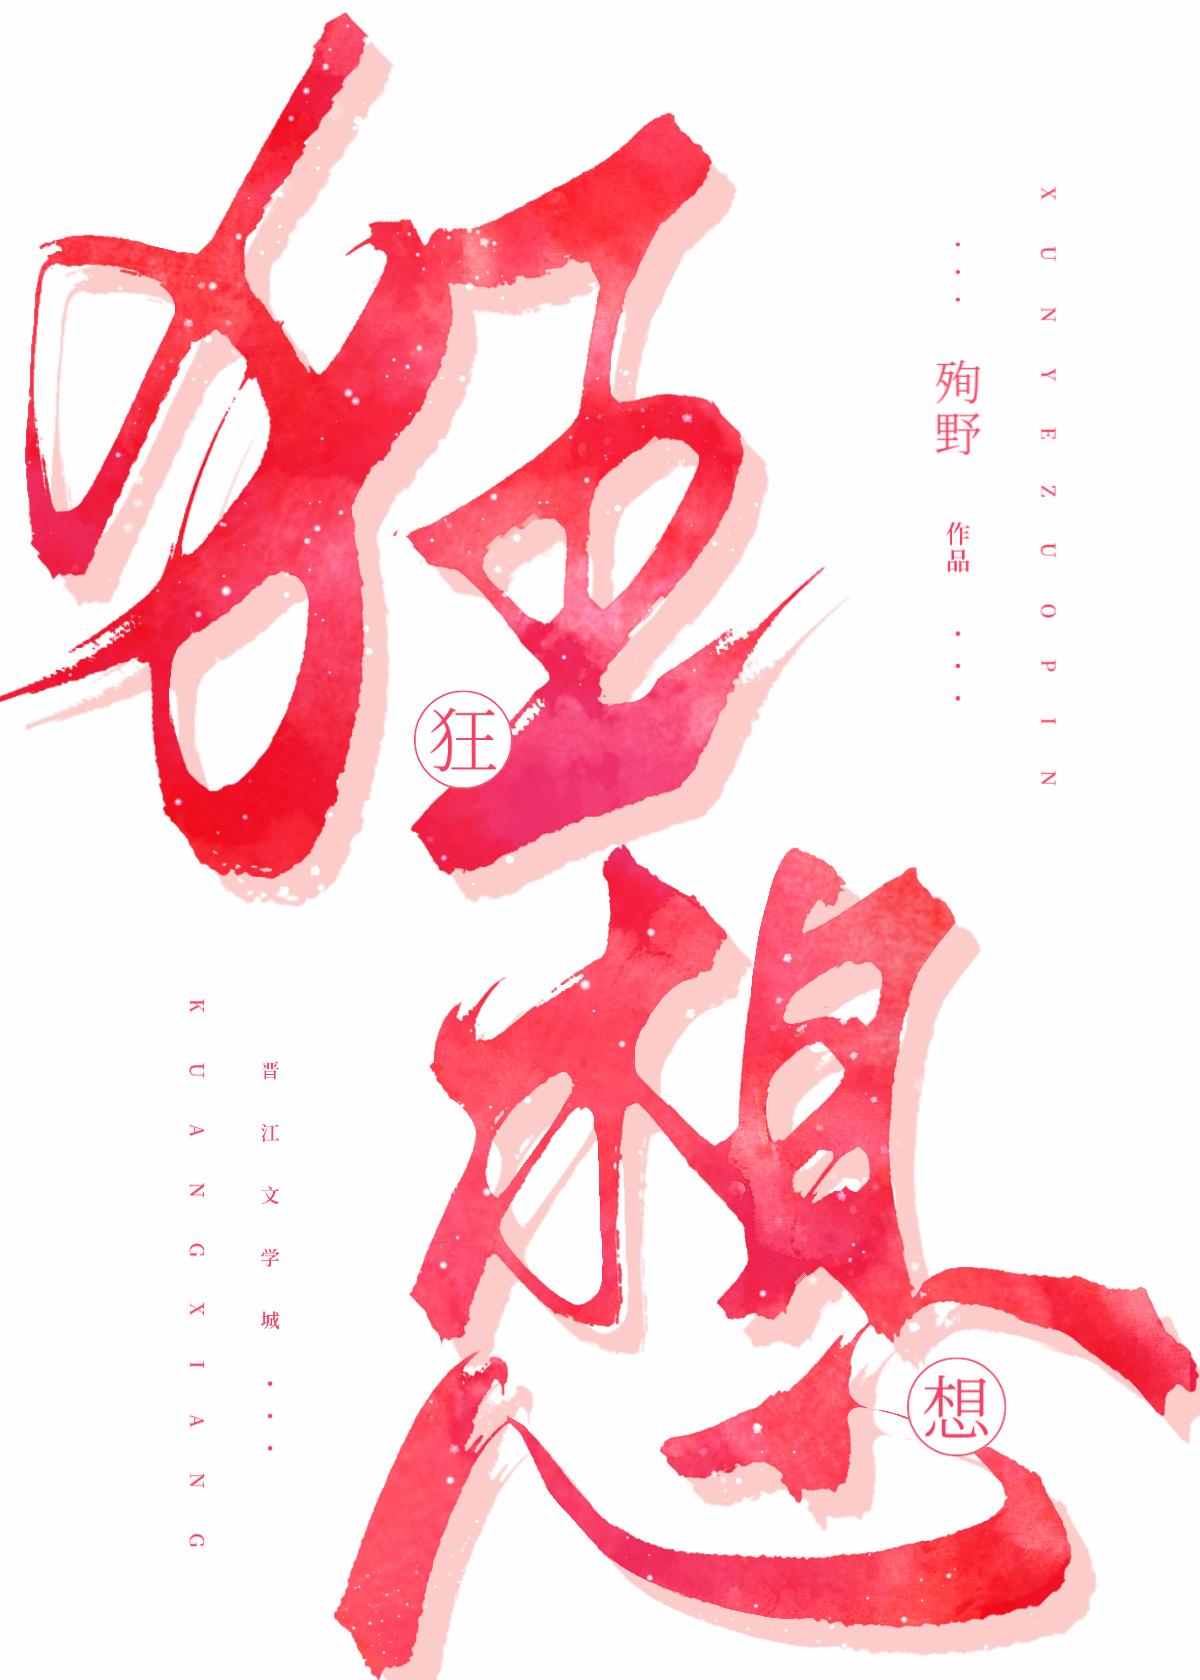 狂想
狂
想
XUNYEZUOPIN
殉野 作品
晋江文学城
KUANGXIANG